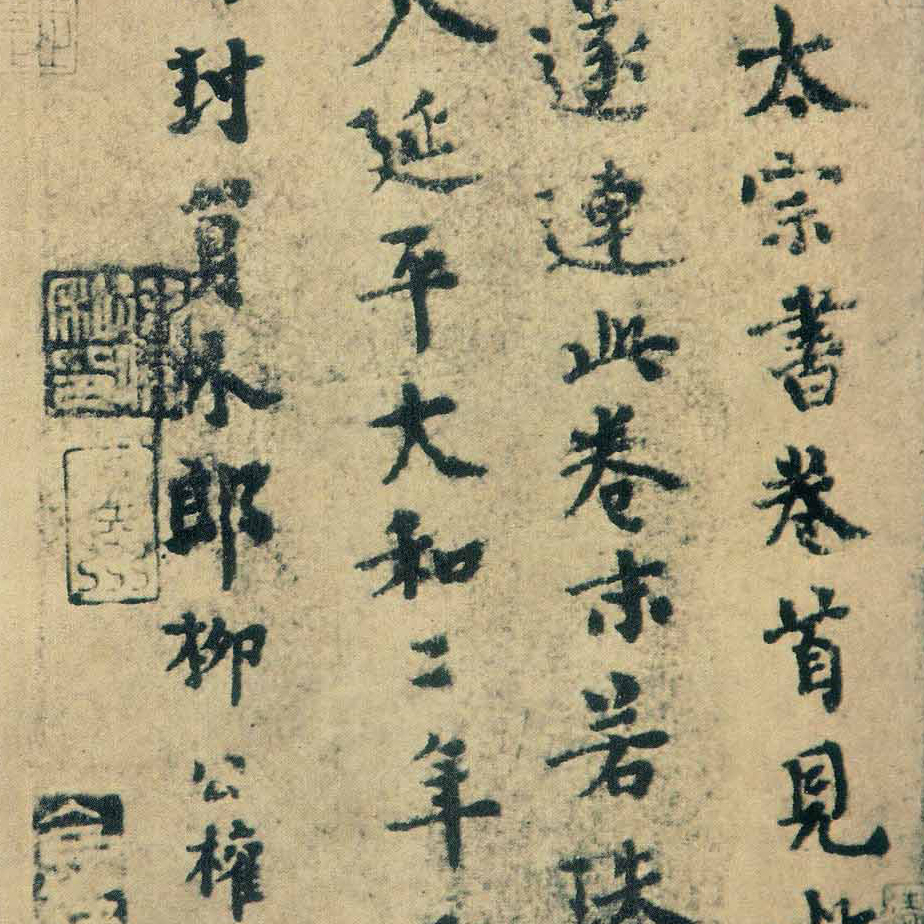 太宗書卷首見
遂連此卷末若珠
入延平大和二年
封員外郎柳公權